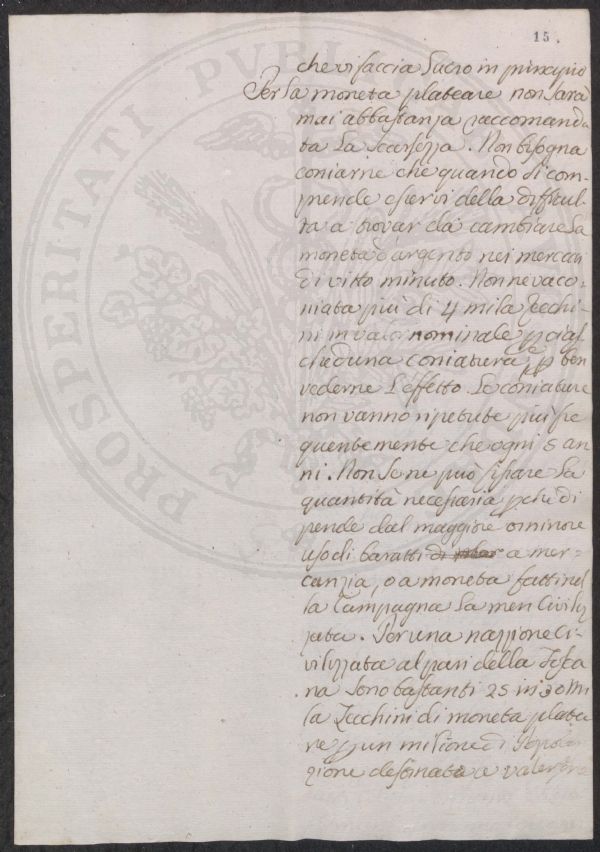 15.
che vi faccia lucro in principio
Per la moneta plateare non sarà
mai abbastanza raccomanda
ta la scarsezza. Non bisogna
coniarne che quando si com-
prende esservi della difficul-
tà a trovar da cambiare la
moneta d'argento nei mercati
di vitto minuto. Non ne va co-
niata più di 4 mila Zecchi-
ni in valor nominale p cias
cheduna coniatura, e p ben
vederne l'effetto. Le coniature
non vanno ripetute più fre
quentemente che ogni 5 an
ni. Non se ne può fissare la
quantità necessaria pche di
pende dal maggiore o minore
uso di baratti di a mer-
canzia, o a moneta fatti nel
la Campagna la men Civiliz
zata. Per una nazzione Ci-
vilizzata al pari della Tosca
na sono bastanti 25 in 30 mi
la Zecchini di moneta platea
re p un milione di Popola
zione destinata a valersene
PROSPERITATI PVBL